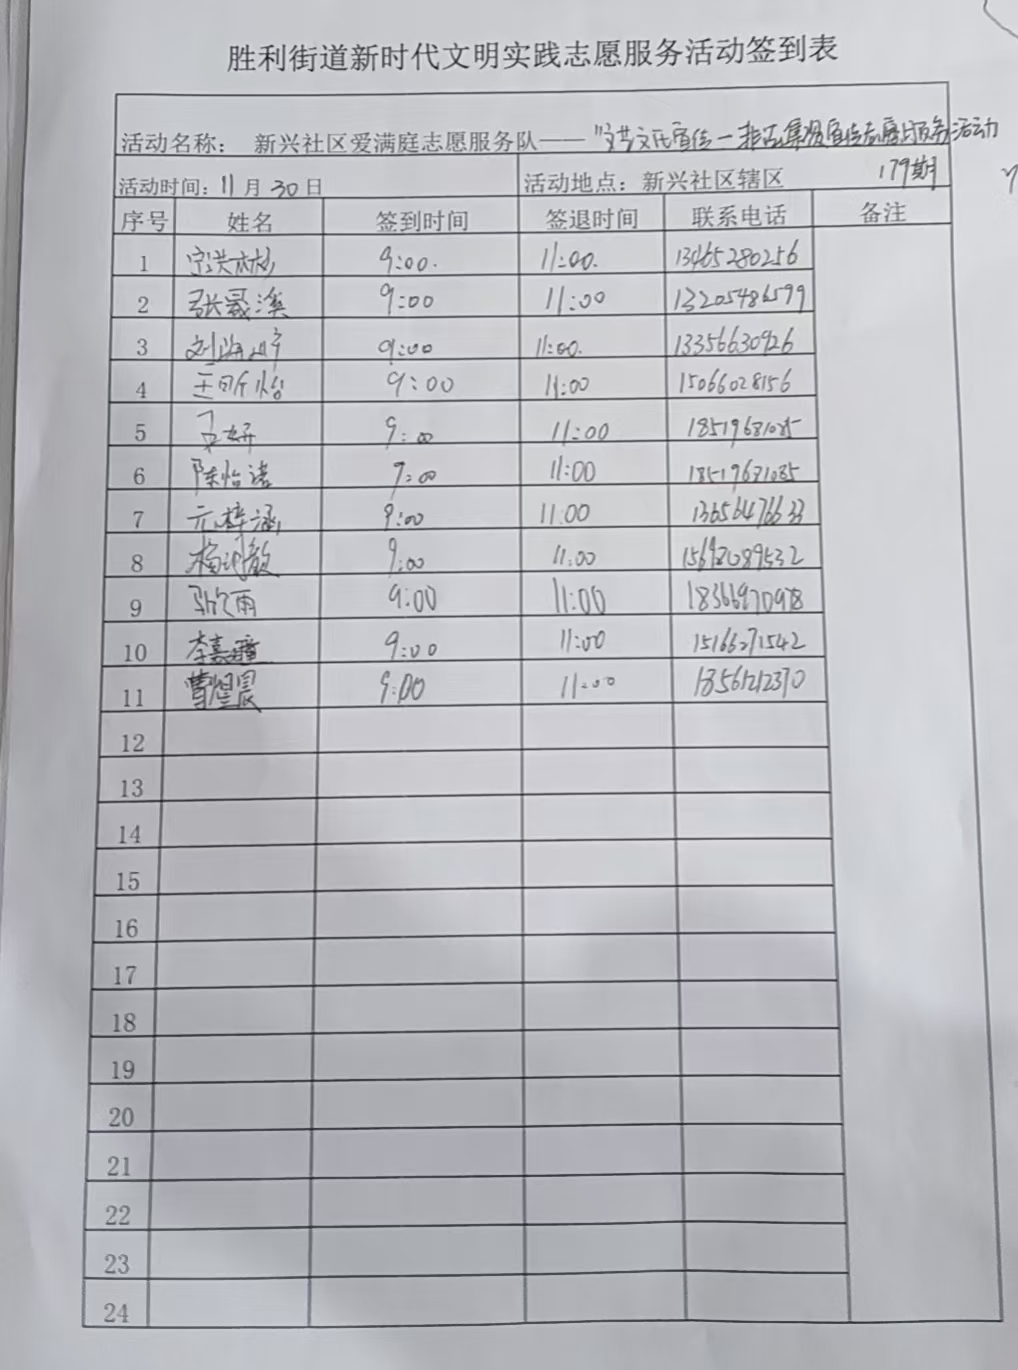 胜利街道新时代文明实践志愿服务活动签到表
活动名称： 新兴社区爱满庭志愿服务队——"
服务活动
179期
活动时间：11月30日 活动地点：新兴社区辖区
序号 姓名 签到时间 签退时间 联系电话 备注
1 9:00. 11:00. 13465280256
2 张晟溪 9:00 11:00 13205486599
3 刘海 9:00 11:00. 13356630926
4 王昕怡 9:00 11:00 15066028156
5 9:00 11:00
6 陈怡诺 9:00 11:00
7 元梓涵 9:00 11:00 13656476633
8 杨 9:00 11:00 15692089532
9 马欣雨 9:00 11:00 18366970978
10 李嘉瞳 9:00 11:00 15166271542
11 曹煜晨 9:00 11:00 18561212310
12
13
14
15
16
17
18
19
20
21
22
23
24